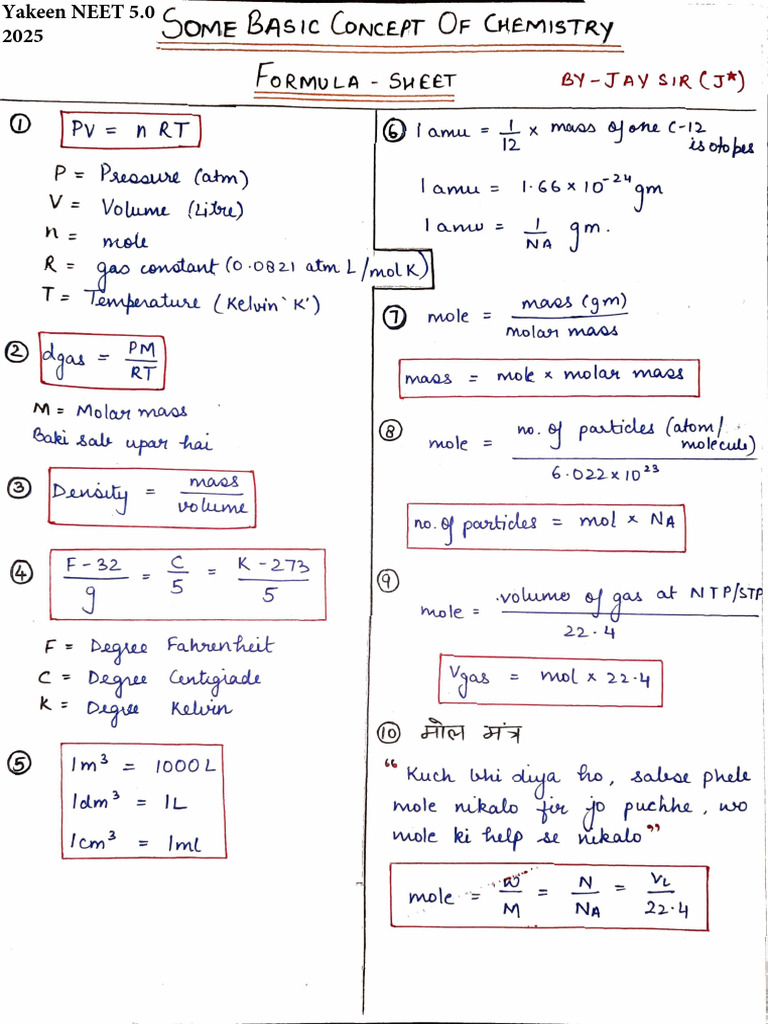 Yakeen NEET 5.0
2025
SOME BASIC CONCEPT OF CHEMISTRY
FORMULA - SHEET
BY - JAY SIR (J*)
① PV = n RT
P = Pressure (atm)
V = Volume (Litre)
n = mole
R = gas constant (0.0821 atm L/mol K)
T = Temperature (Kelvin 'K')
② dgas = PM/RT
M = Molar mass
Baki sab upar hai
③ Density = mass/volume
④ F - 32/9 = C/5 = K - 273/5
F = Degree Fahrenheit
C = Degree Centigrade
K = Degree Kelvin
⑤ 1m³ = 1000 L
1dm³ = 1L
1cm³ = 1ml
⑥ 1 amu = 1/12 × mass of one C-12
isotopes
1 amu = 1.66 × 10⁻²⁴ gm
1 amu = 1/NA gm.
⑦ mole = mass (gm)/molar mass
mass = mole × molar mass
⑧ mole = no. of particles (atom/molecule)/6.022 × 10²³
no. of particles = mol × NA
⑨ mole = volume of gas at NTP/STP/22.4
Vgas = mol × 22.4
⑩ मोल मंत्र
“ Kuch bhi diya ho, sabse phele
mole nikalo fir jo puchhe, wo
mole ki help se nikalo ”
mole = w/M = N/NA = VL/22.4